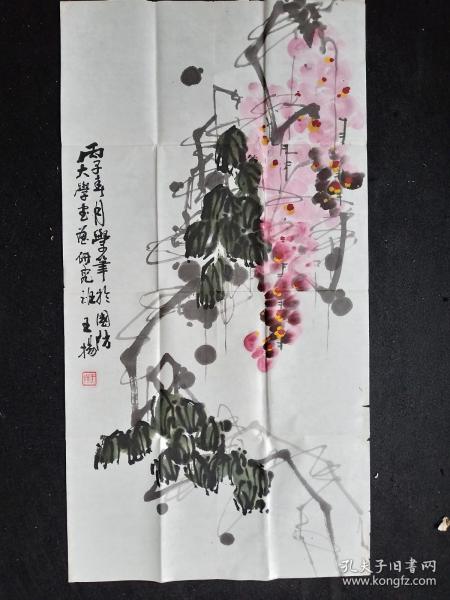 丙子年月学笔於国防
大学书画研究班王扬
孔夫子旧书网
www.kongfz.com